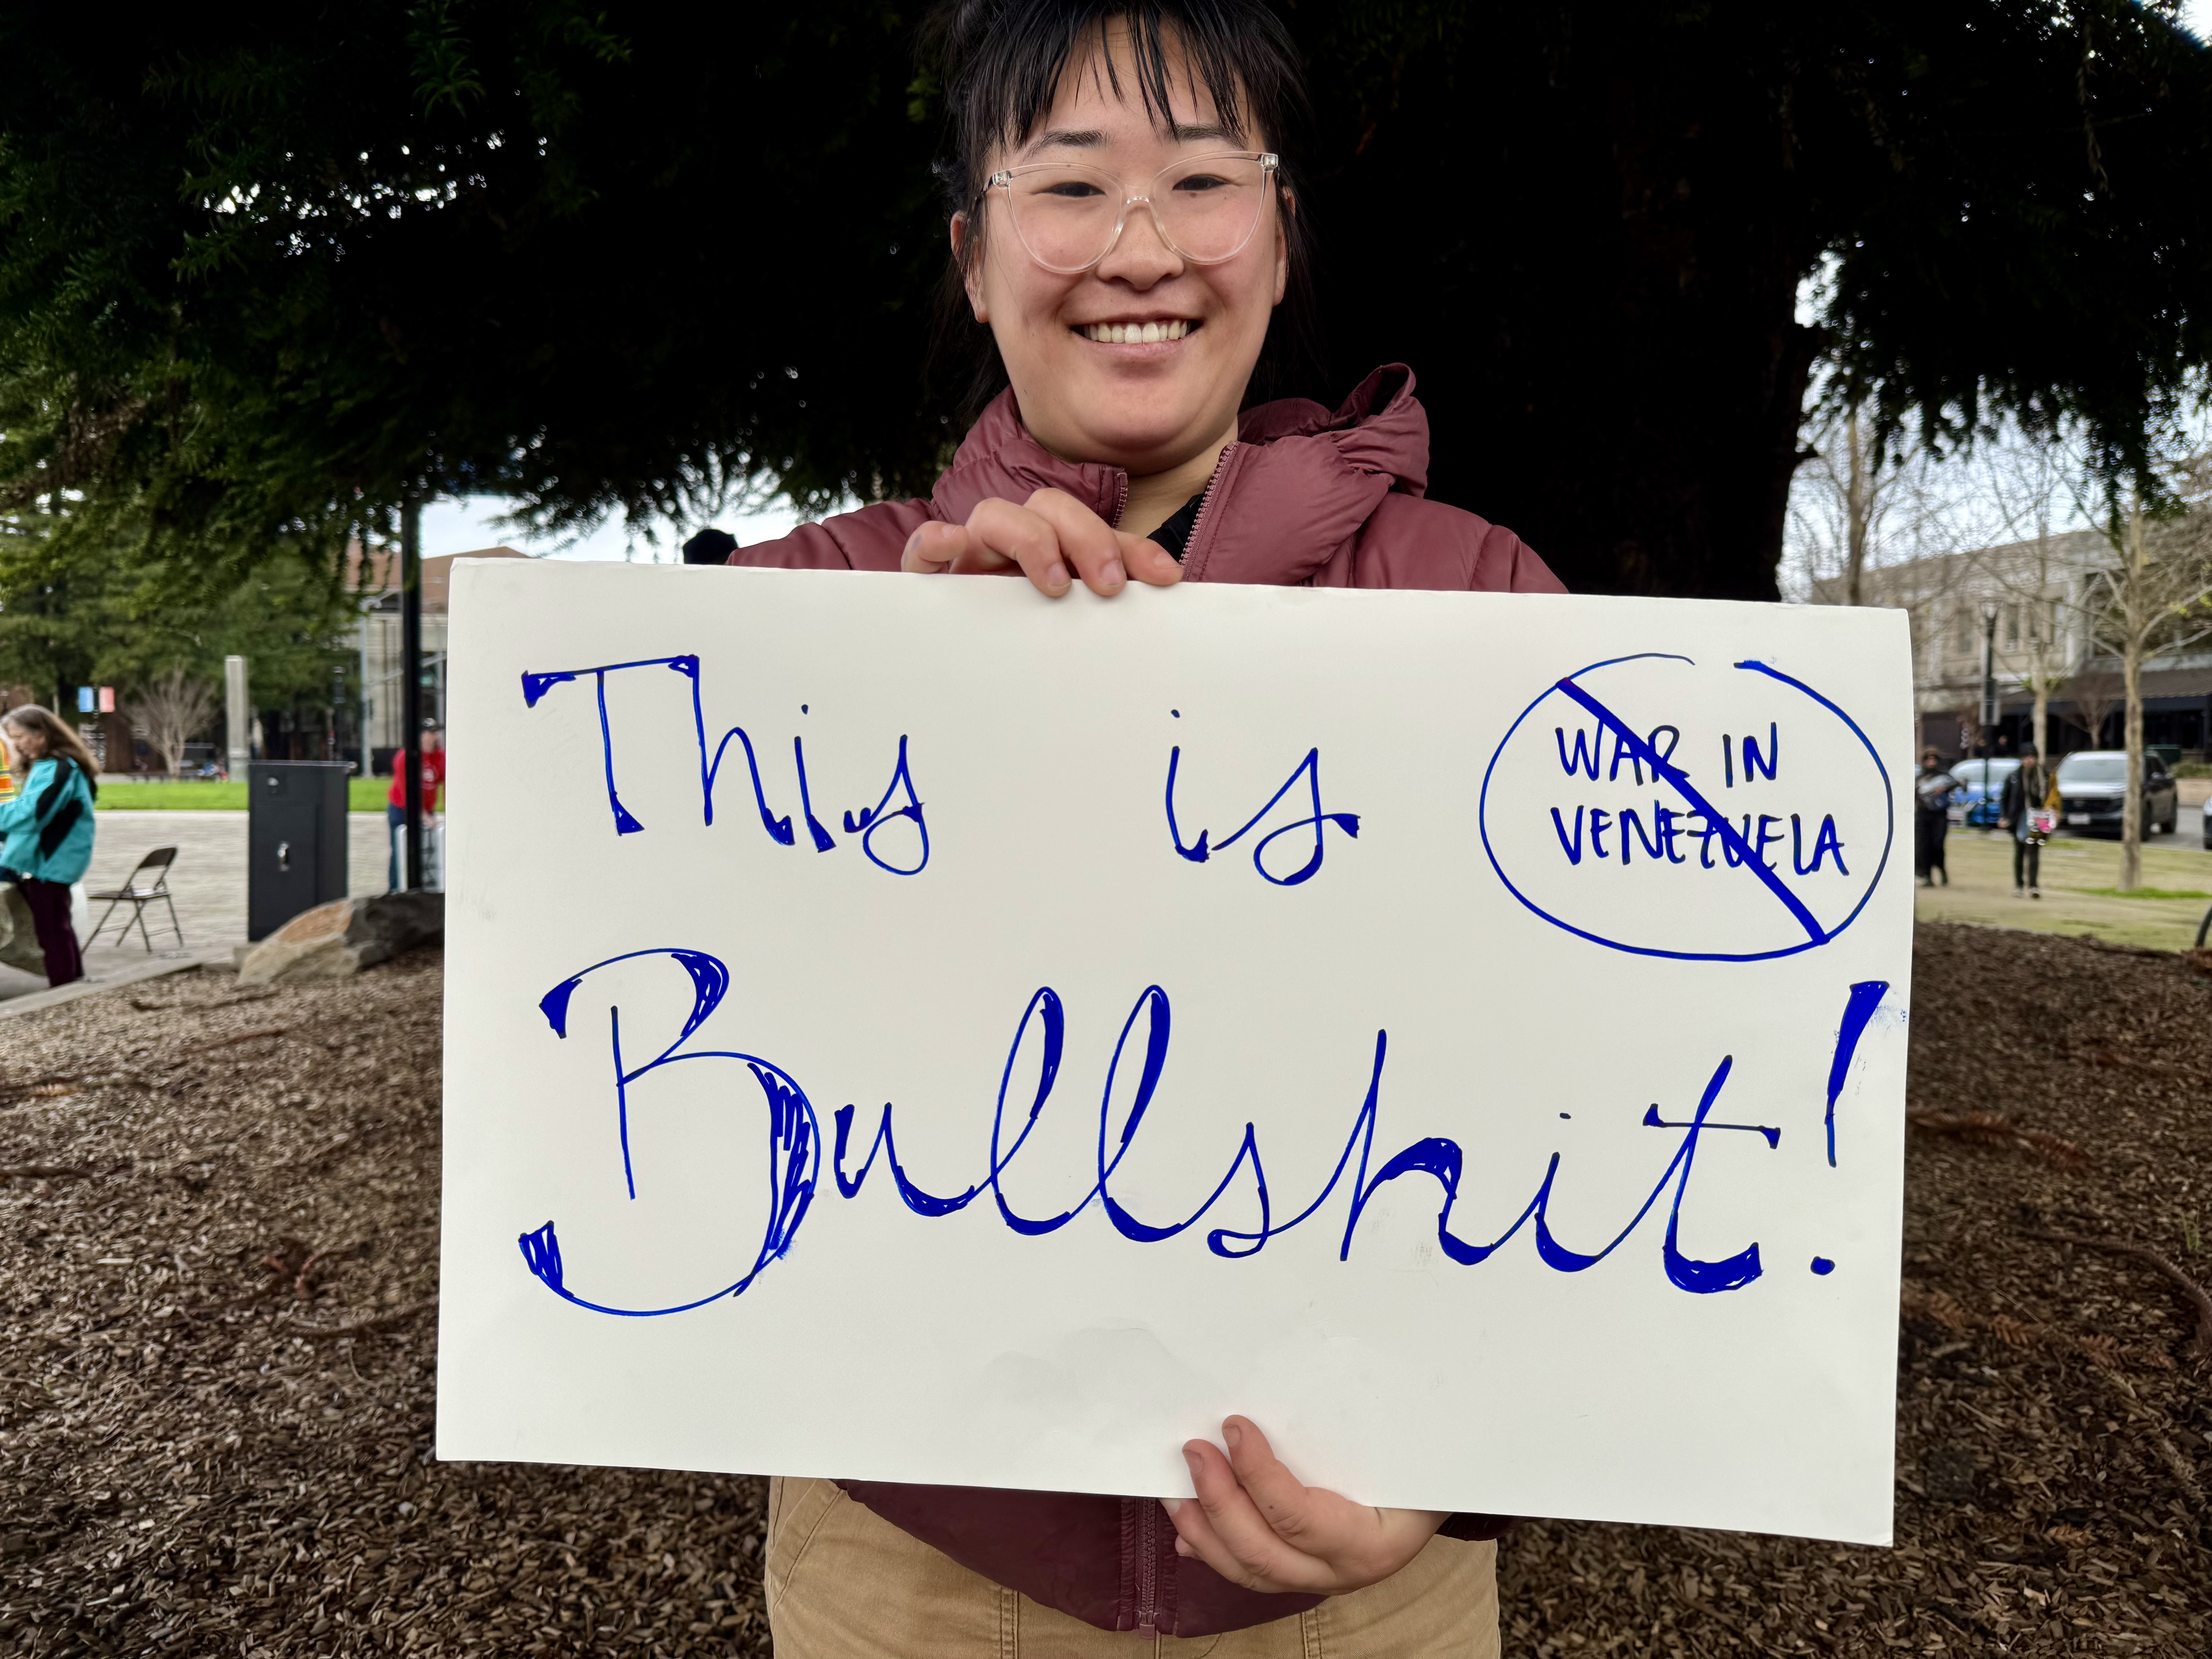 This is
WAR IN
VENEZUELA
Bullshit!